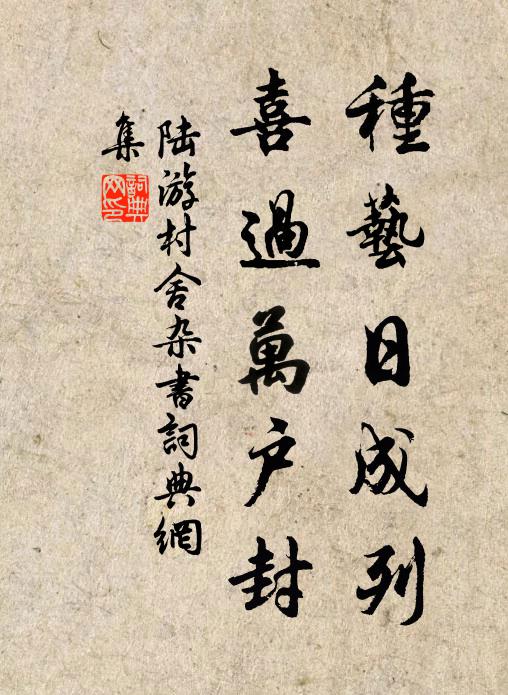 種藝日成列
喜過萬戶封
陸游村舍杂書詞典網
集
詞典
网印